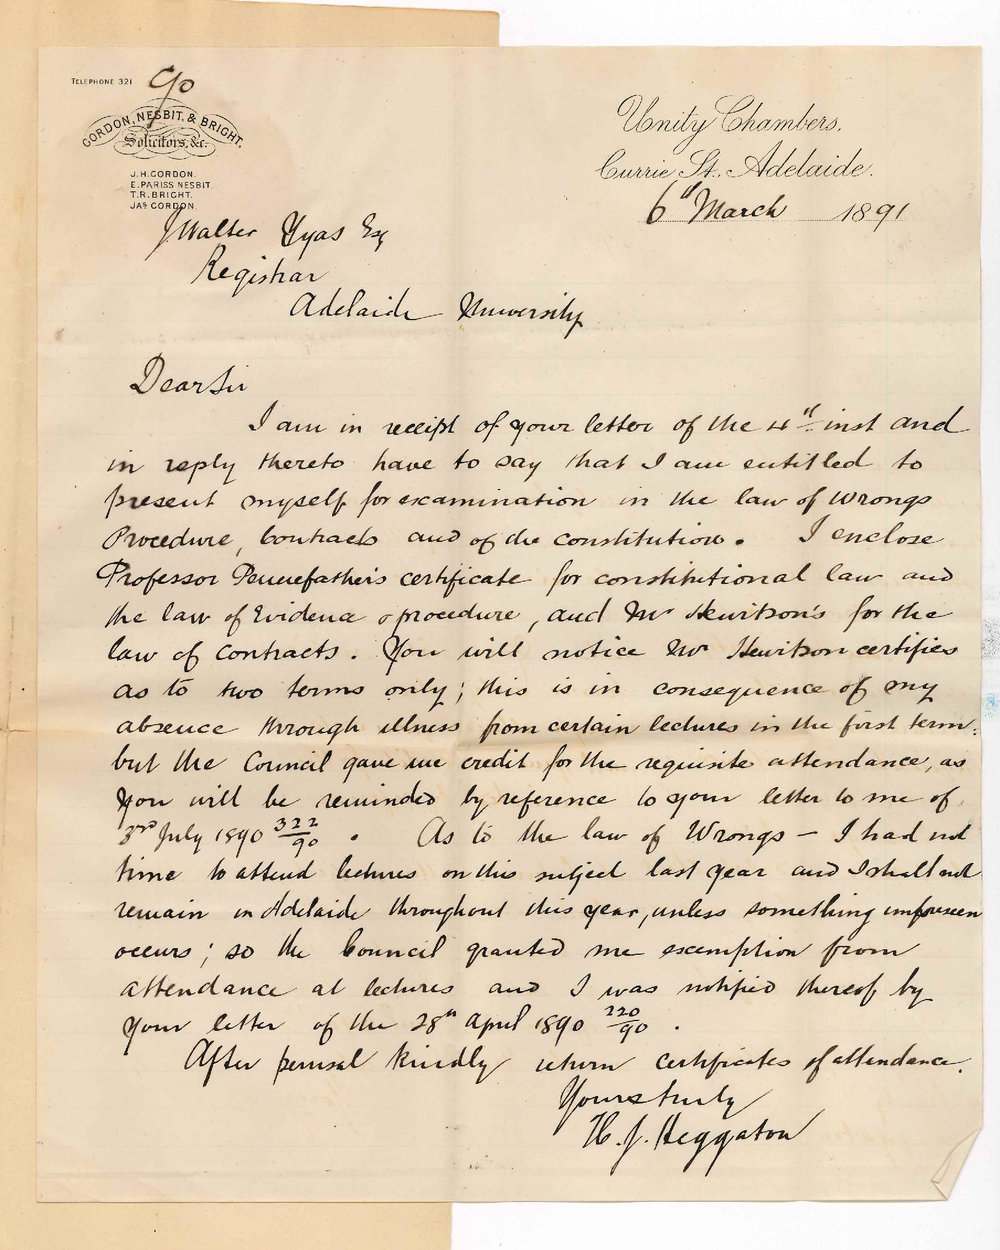 TELEPHONE 321
90
GORDON, NESBIT, & BRIGHT,
Solicitors, &c.
J.H. GORDON.
E. PARISS NESBIT.
T.R. BRIGHT.
JAS GORDON.
Unity Chambers,
Currie St. Adelaide.
6th March 1891
J Walter Tyas Esq
Registrar
Adelaide University
Dear Sir
I am in receipt of your letter of the 4th inst and
in reply thereto have to say that I am entitled to
present myself for examination in the law of Wrongs
Procedure, Contracts and of the constitution. I enclose
Professor Pennefather's certificate for constitutional law and
the law of Evidence & procedure, and Mr Hewitson's for the
law of contracts. You will notice Mr Hewitson certifies
as to two terms only; this is in consequence of my
absence through illness from certain lectures in the first term:
but the Council gave me credit for the requisite attendance, as
you will be reminded by reference to your letter to me of
3rd July 1890 322/90. As to the law of Wrongs — I had not
time to attend lectures on this subject last year and I shall not
remain in Adelaide throughout this year, unless something unforeseen
occurs; so the Council granted me exemption from
attendance at lectures and I was notified thereof by
your letter of the 28th April 1890 220/90.
After perusal kindly return certificates of attendance.
Yours truly
H. J. Heggaton